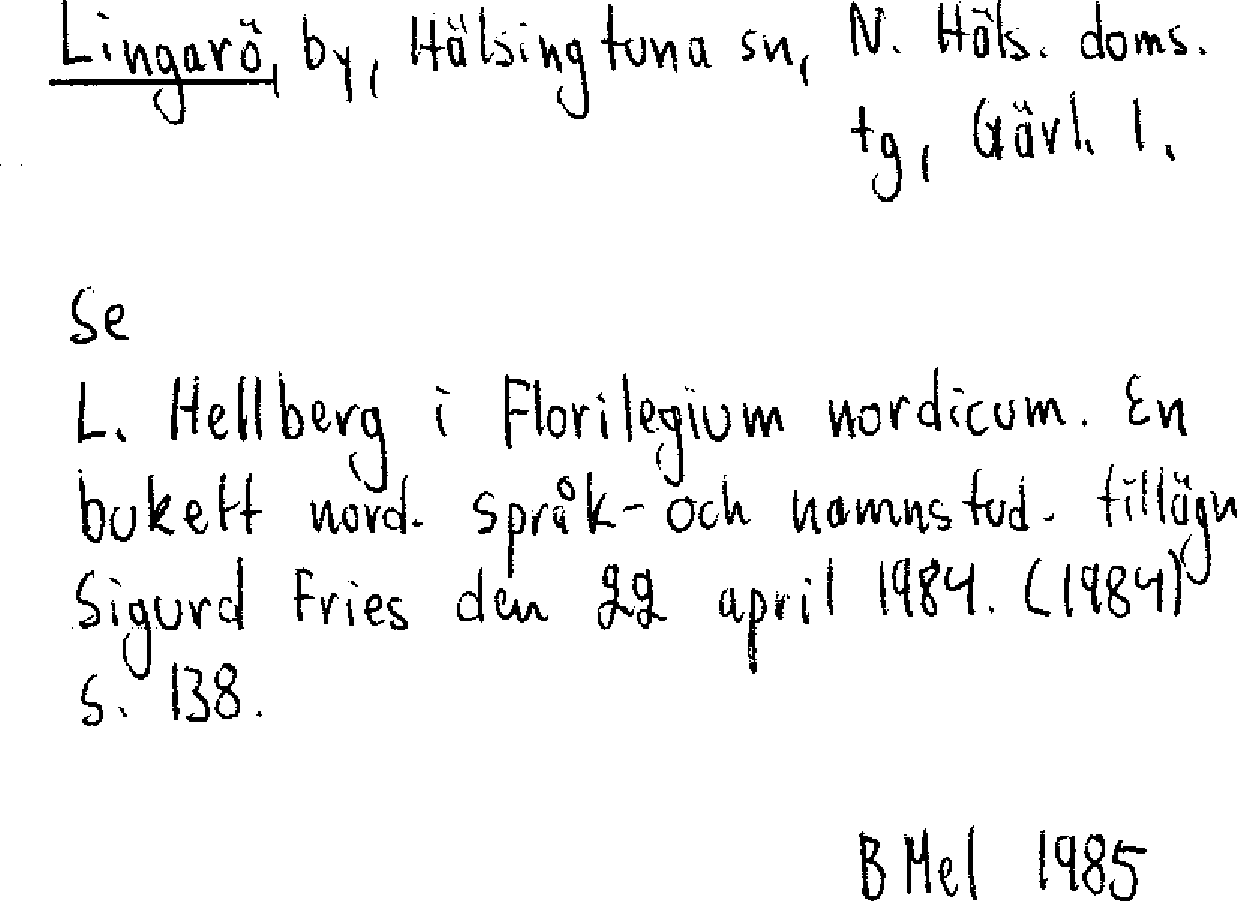 Lingarö, by, Hälsingtuna sn, N. Häls. doms.
tg, Gävl. l.
Se
L. Hellberg i Florilegium nordicum. En
bukett nord. språk- och namnstud. tillägn
Sigurd Fries den 22 april 1984. (1984)
s. 138.
B Mel 1985